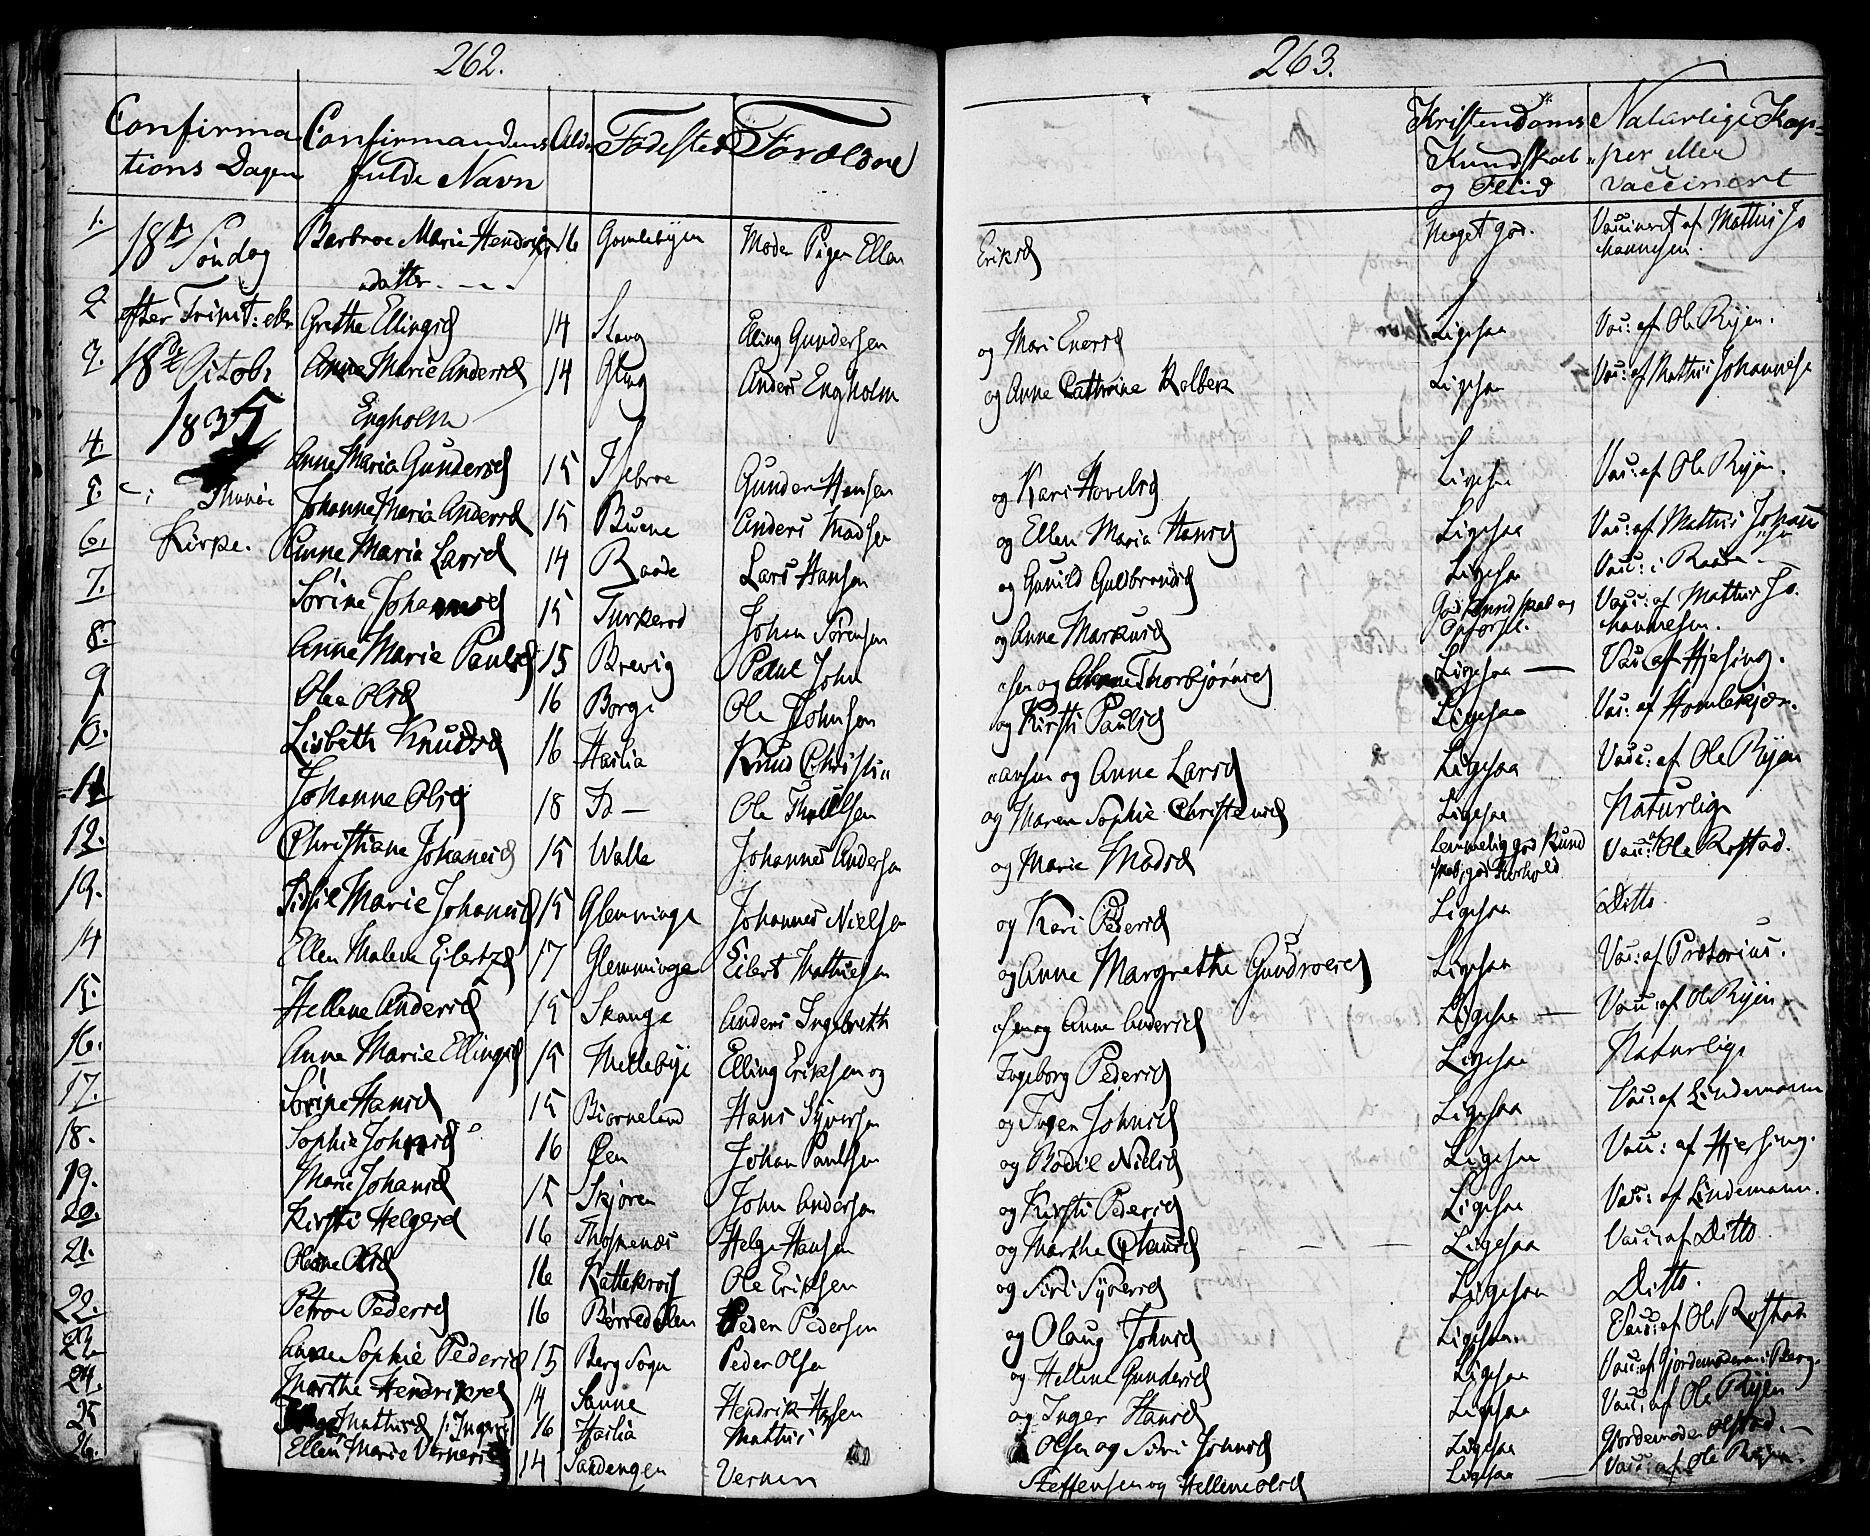 262.
263.
Confirma
tions Dagen
Confirmandens
fulde Navn
Alder
Fødested
Forældre
Kristendoms
Kundskab
og Fliid
Naturlige Kop-
per eller
vaccinert
18de Søndag
efter Trinit: eller
18de Octob:
1835
i Thunøe
Kirke.
1. Barbroe Marie Hendriks 16 Gamlebyen Moder Pigen Ellen Eriksd Meget god. Vaccinert af Mathis Jo
datter. hannesen.
2 Grethe Ellingsd 14 Stavg Elling Gundersen og Mari Enersd Ligesaa Vac: af Ole Ryen.
3. Anne Marie Andersd 14 Gleng Anders Engholm og Anne Cathrine Kolbek Ligesaa Vac: af Mathis Johannese
Engholm
4. Anne Maria Gundersd 15 Isebroe Gunder Hansen og Kari Hovelsd Ligesaa Vac: af Ole Ryen.
5. Johanne Maria Andersd 15 Buene Anders Madsen og Ellen Maria Hansd Ligesaa Vac: af Mathis Johans
6. Anne Maria Larsd 14 Raade Lars Hansen og Gunild Guldbrandsd Ligesaa Vac: i Raade
7. Sørine Johannesd 15 Turkerød Johan Sørensen og Anne Markusd God Kundskab og Vac: af Mathis Jo.
Opførsel. hannesen.
8. Anne Marie Paulsd 15 Brevig Paul John sen og Anne Thorbjørnsd Ligesaa Vac: af Hjesing.
9 Olea Olsd 16 Borge Ole Johnsen og Kirsti Paulsd Ligesaa Vac: af Homlekjær.
10. Lisbeth Knudsd 16 Hasliä Knud Christi ansen og Anne Larsd Ligesaa Vacc: af Ole Ryen
11 Johanne Olsd 18 Do Ole Truelsen og Maren Sophie Christensd Ligesaa Naturlige
12. Christiane Johansd 15 Walle Johannes Andersen og Marie Madsd Temmelig god Kund Vac: af Ole Rostad.
skab, god Forhold
13. Sidsil Marie Johansd 15 Glemminge Johannes Nielsen og Kari Pedersd Ligesaa Ditto.
14 Ellen Malene Eilertzd 17 Glemminge Eilert Mathisen og Anne Margrethe Gundroesd Ligesaa Vac: af Prætorius.
15. Hellene Andersd 15 Skauge Anders Ingebreth sen og Anne Andersd Ligesaa Vac: af Ole Ryen
16. Anne Marie Ellingsd 15 Thellebye Elling Eriksen og Ingeborg Pedersd Ligesaa Naturlige
17. Sørine Hansd 15 Biørneland Hans Syversen og Ingen Johnsd Ligesaa Vac: af Lindemann
18. Sophie Johansd 16 Øen Johan Paulsen og Bodil Nilsd Ligesaa Vac: af Hjersing.
19. Marie Johansd 15 Skjøren John Andersen og Kirsti Pedersd Ligesaa Vac: af Lindemann.
20. Kirsti Helgesd 16 Thosknæs Helge Hansen og Marthe Clausd Ligesaa Vac: af Ditto.
21. Oleane Olsd 16 Kattekrois Ole Eriksen og Siri Syversd Ligesaa Ditto.
22. Petroe Pedersd 16 Børredalen Peder Pedersen og Olaug Johnsd Ligesaa. Vac: af Ole Rostad
23 Anne Sophie Pedersd 15 Berg Sogn Peder Olsen og Hellene Gundersd Ligesaa Vac: af Gjordemoderen i Berg.
24. Marthe Hendriksd 14 Sanne Hendrik Hansen og Inger Hansd Ligesaa Vac: af Ole Ryen
25 Mathisd 16 Hasliä Mathis Olsen og Siri Johnsd Ligesaa Gjordemoder Olstad.
26. Ellen Marie Vernersd 14 Sandengen Verner Steffensen og Hellene Olsd Ligesaa Vac: af Ole Ryen.